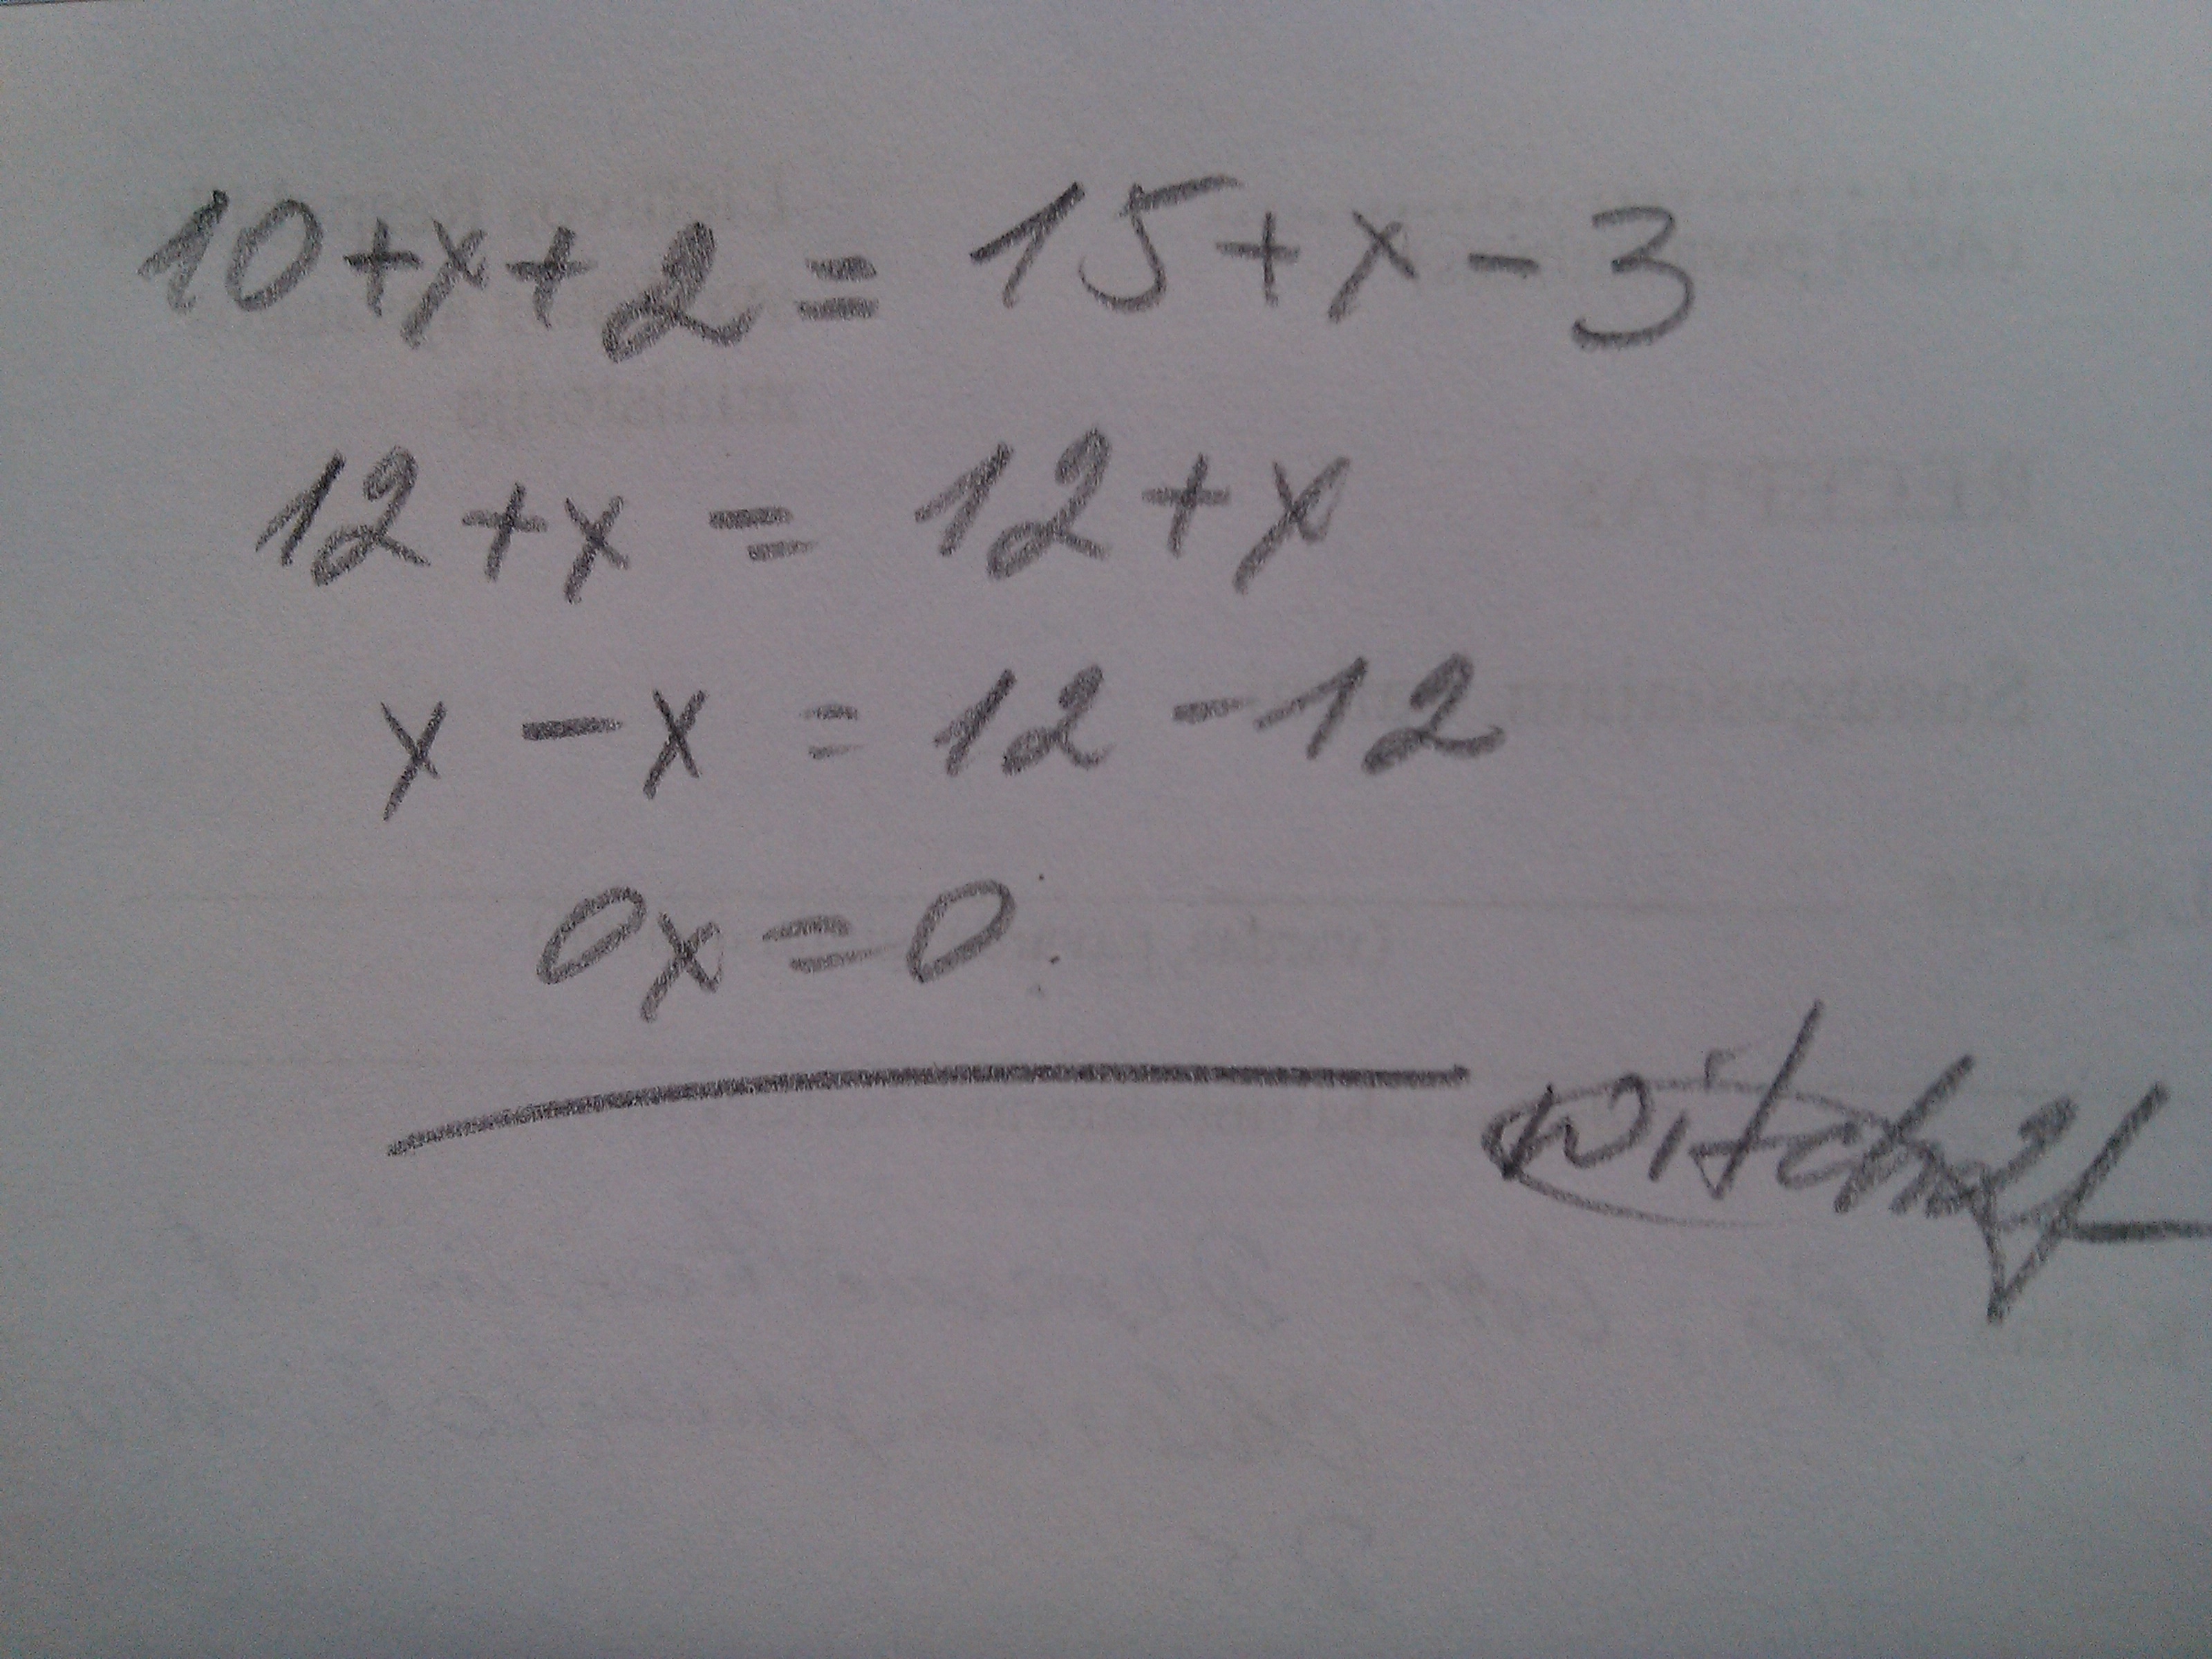 10+x+2 = 15+x-3
12+x = 12+x
x-x = 12-12
0x=0